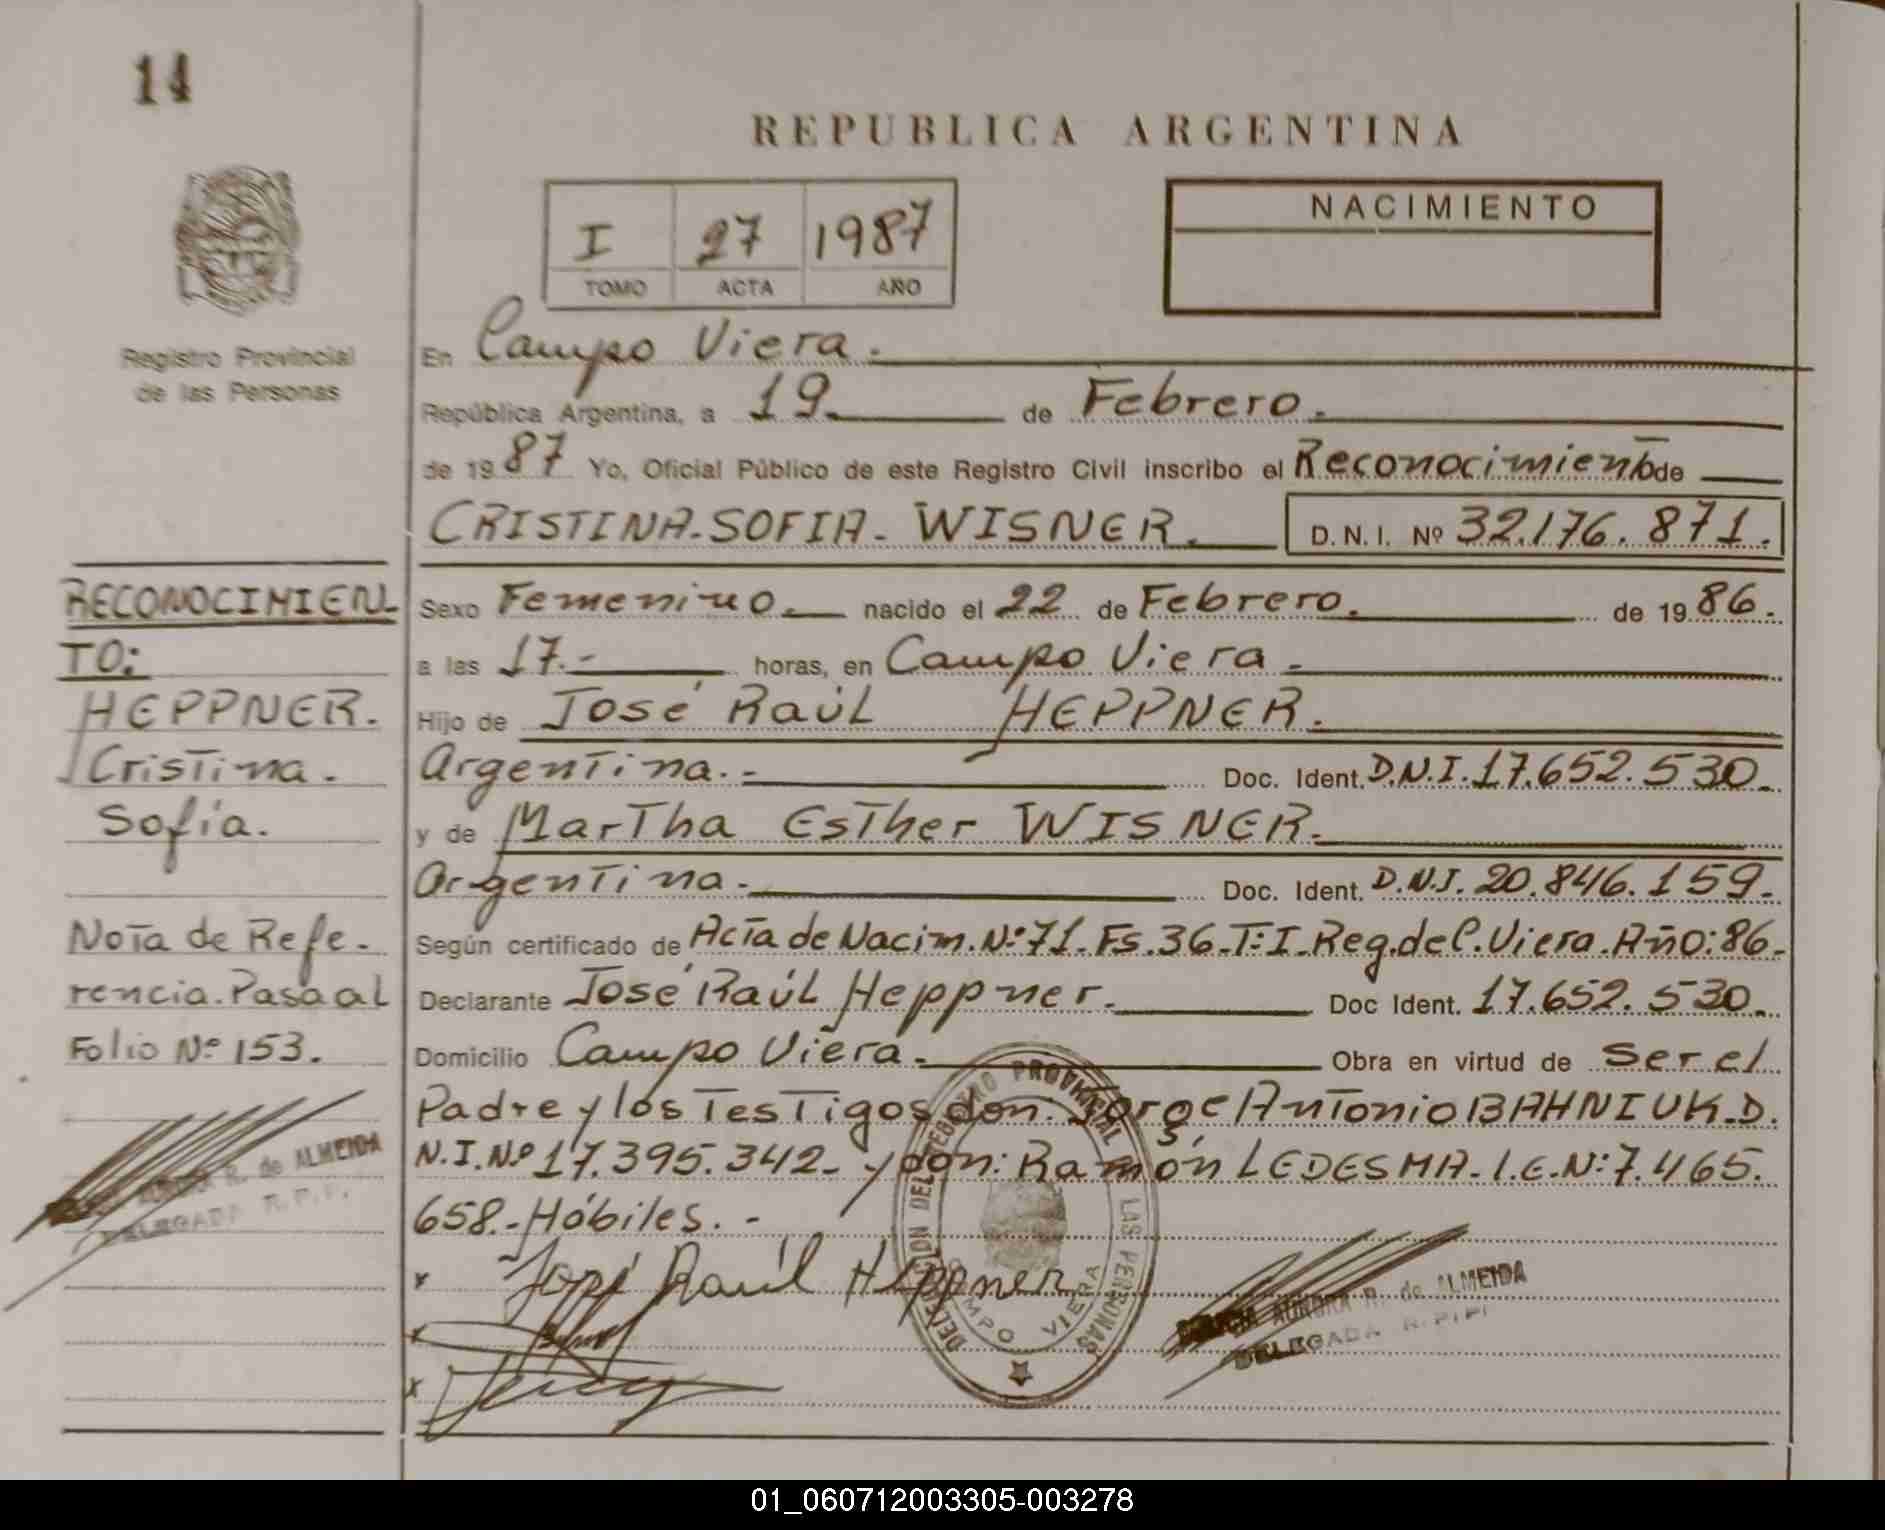 14
REPUBLICA ARGENTINA
I 27 1987
TOMO ACTA AÑO
NACIMIENTO
Registro Provincial
de las Personas
En Campo Viera.
República Argentina, a 19 de Febrero.
de 1987 Yo, Oficial Público de este Registro Civil inscribo el Reconocimiento de
CRISTINA-SOFIA- WISNER. D. N. I. Nº 32.176.871.
Sexo Femenino. nacido el 22 de Febrero. de 1986.
a las 17.- horas, en Campo Viera.
Hijo de José Raúl HEPPNER.
Argentina.- Doc. Ident. D.N.I. 17.652.530.
y de Martha Esther WISNER.
Argentina. Doc. Ident. D.N.I. 20.846.159.
Según certificado de Acta de Nacim. Nº 71. Fs. 36. T: I. Reg. de C. Viera. Año: 86.
Declarante José Raúl Heppner. Doc Ident. 17.652.530.
Domicilio Campo Viera. Obra en virtud de ser el
Padre y los Testigos don: Jorge Antonio BAHNIUK. D.
N.I. Nº 17.395.342- y don: Ramón LEDESMA. L.E. Nº: 7.465.
658.- Hábiles.-
x José Raúl Heppner
x
x
RECONOCIMIEN
TO:
HEPPNER.
Cristina.
Sofía.
Nota de Refe-
rencia. Pasa al
Folio Nº 153.
AURORA R. de ALMEIDA
DELEGADA R.P.P.
DELEGACION DEL REGISTRO PROVINCIAL DE LAS PERSONAS
CAMPO VIERA
AURORA R. de ALMEIDA
DELEGADA R.P.P.
01_060712003305-003278